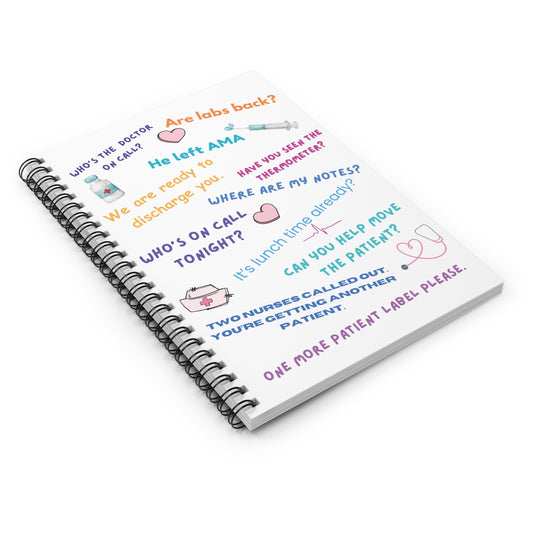 Are labs back?
WHO'S THE DOCTOR
ON CALL?
He left AMA
HAVE YOU SEEN THE
THERMOMETER?
We are ready to
discharge you.
WHERE ARE MY NOTES?
WHO'S ON CALL
TONIGHT?
It's lunch time already?
CAN YOU HELP MOVE
THE PATIENT?
TWO NURSES CALLED OUT.
YOU'RE GETTING ANOTHER
PATIENT.
ONE MORE PATIENT LABEL PLEASE.